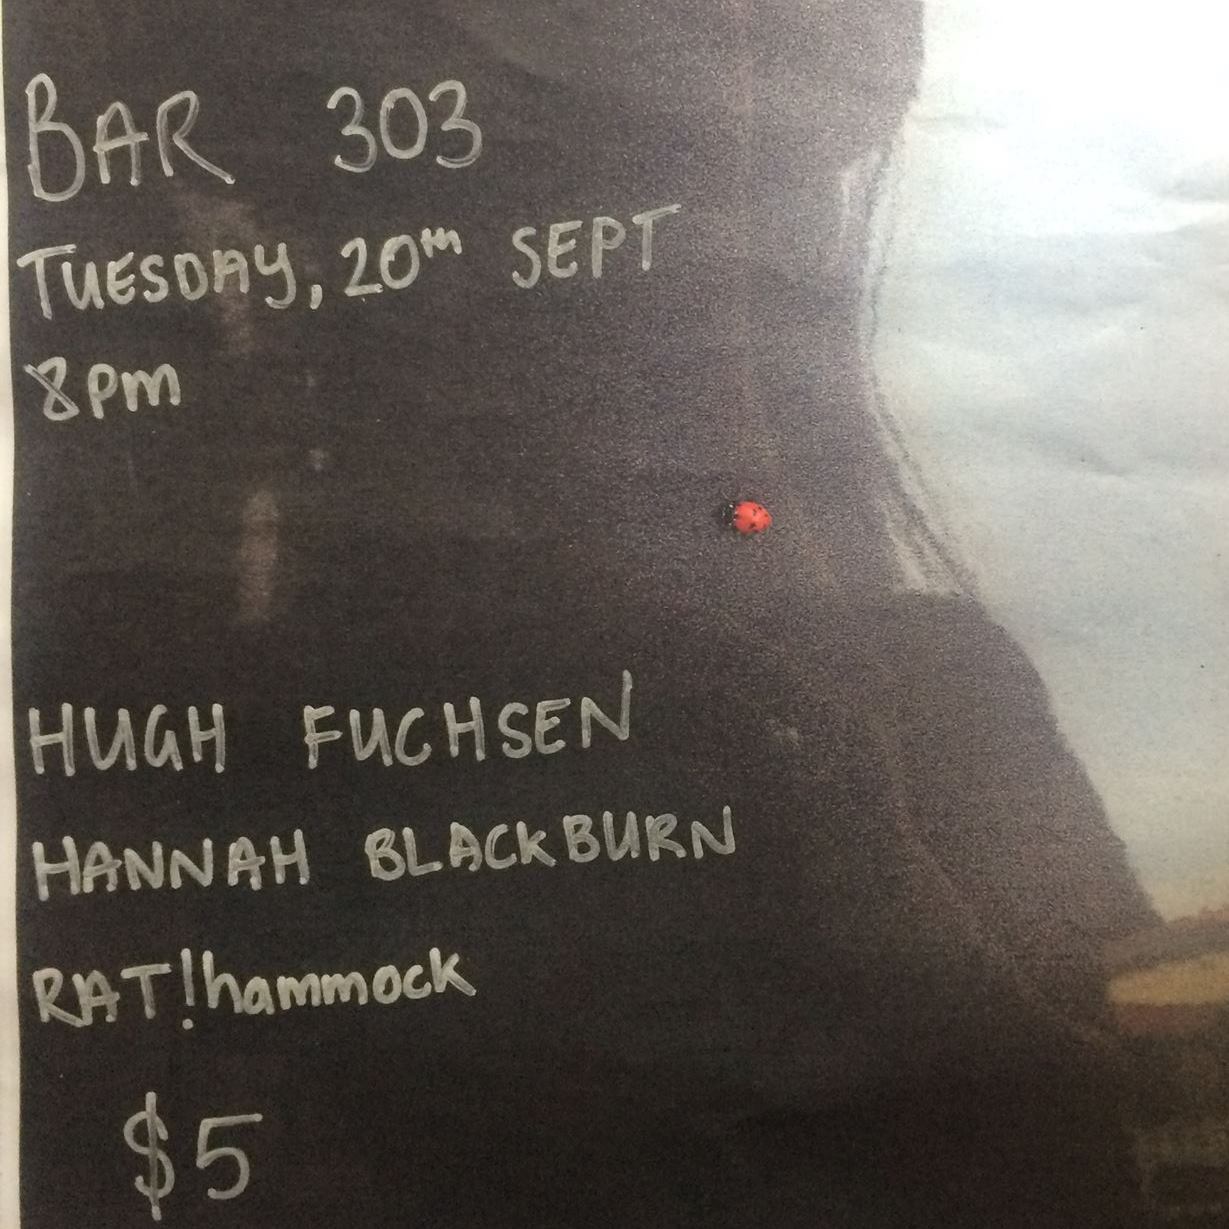 BAR 303
TUESDAY, 20th SEPT
8pm
HUGH FUCHSEN
HANNAH BLACKBURN
RAT!hammock
$5